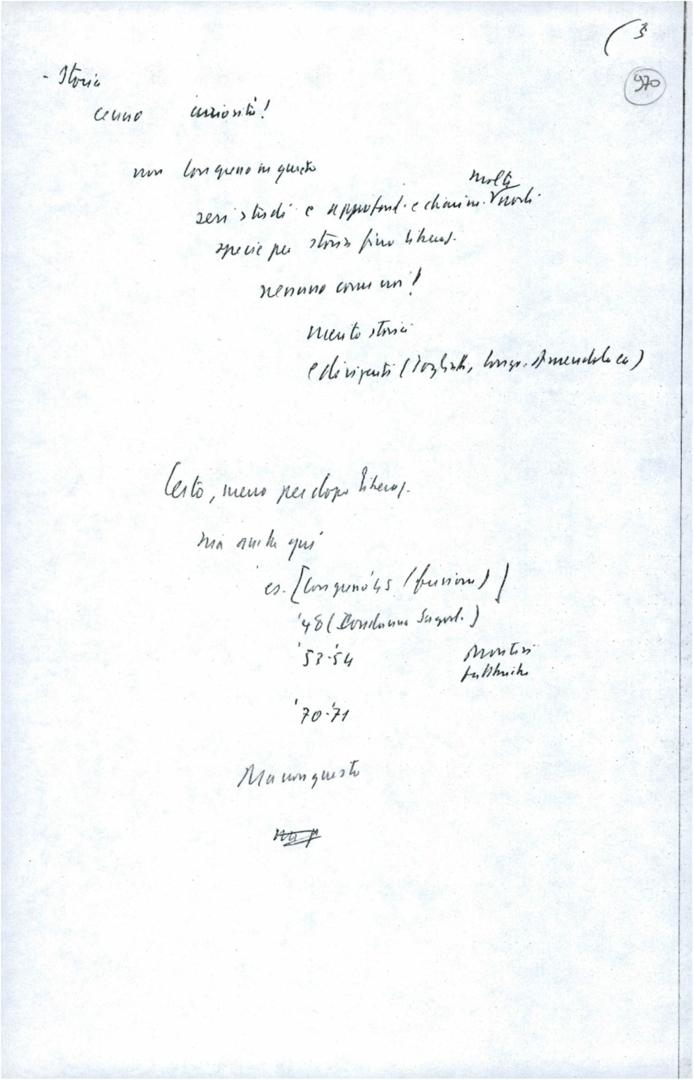 (3
970
- Storia
cenno curiosità!
non Congresso in questo
seri studi e approfond. e chiarim. molti
specie per storia fino liberaz.
nessuno come noi!
merito storici
e dirigenti (Togliatti, Longo, Amendola ecc)
Certo, meno per dopo liberaz.
ma anche qui
es. [Congresso 45 (fusione)]
'48 (Condanna Jugosl.)
'53-'54
'70-'71
Ma non questo